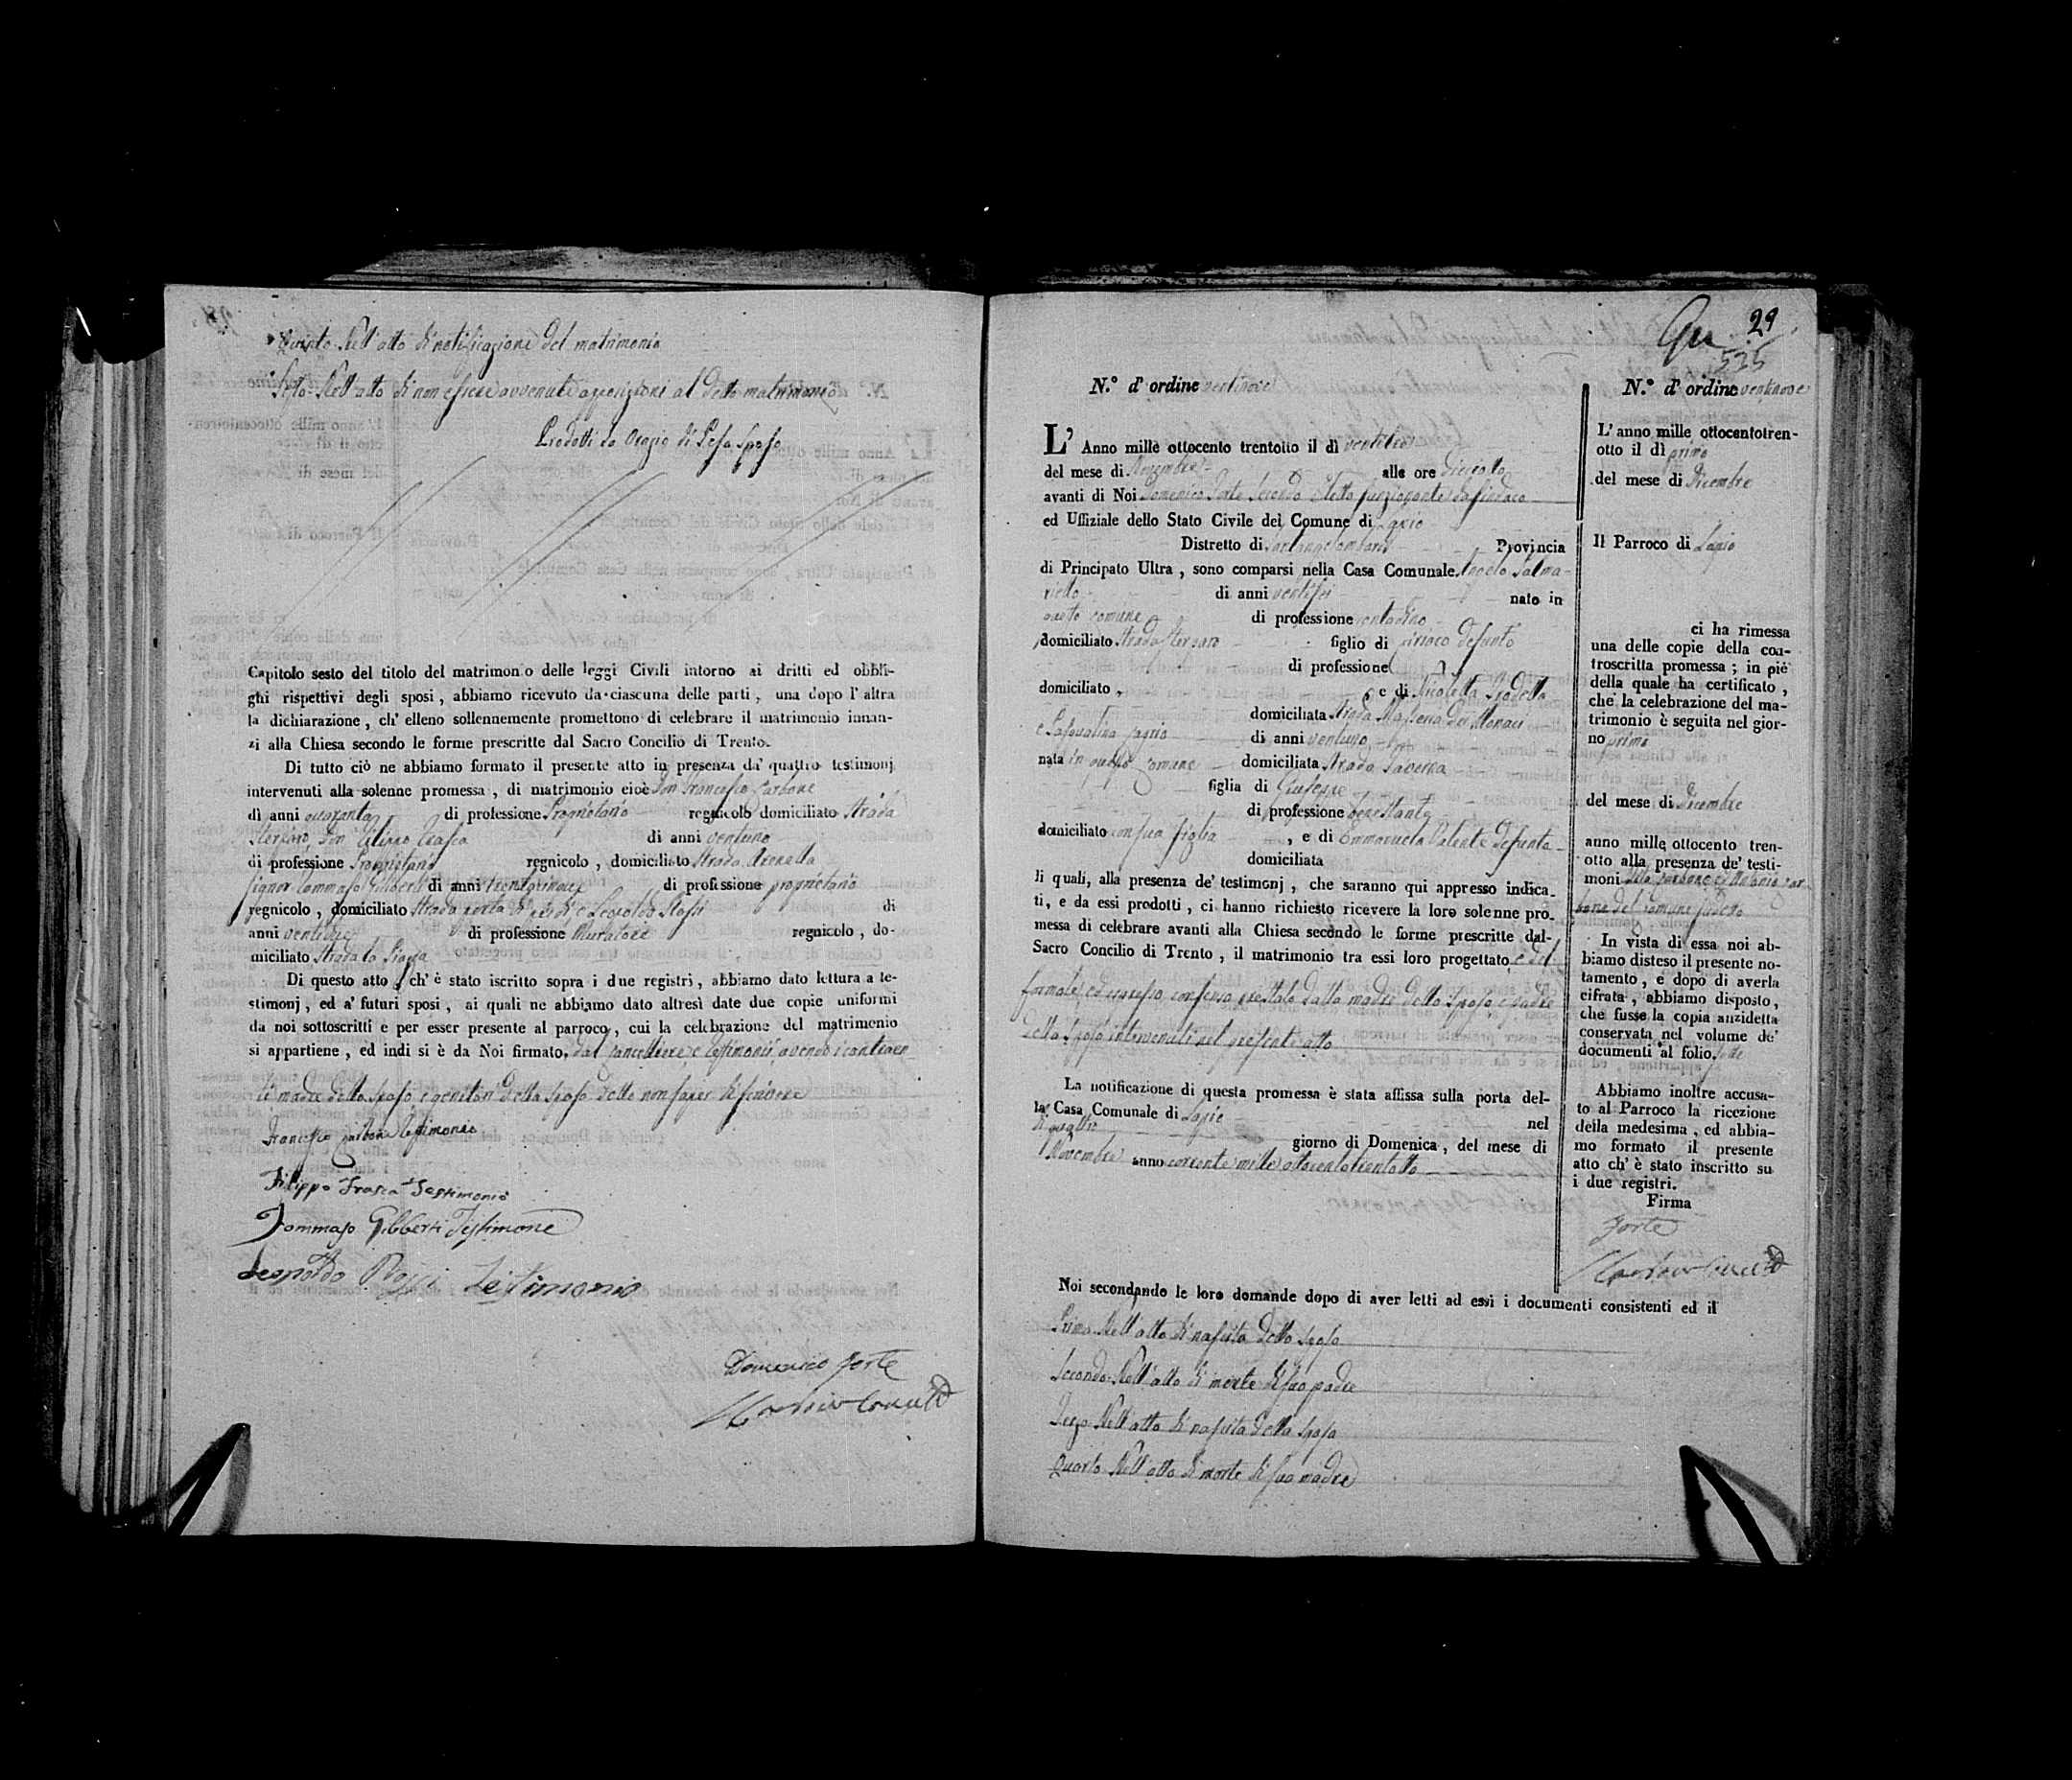 Quinto Nell'atto di notificazione del matrimonio
Sesto Nell'atto di non essere avvenute opposizioni al detto matrimonio
Prodotti da Orazio di Pesa sposo
Capitolo sesto del titolo del matrimonio delle leggi Civili intorno ai dritti ed obbli-
ghi rispettivi degli sposi, abbiamo ricevuto da ciascuna delle parti, una dopo l'altra
la dichiarazione, ch'elleno sollennemente promettono di celebrare il matrimonio innan-
zi alla Chiesa secondo le forme prescritte dal Sacro Concilio di Trento.
Di tutto ciò ne abbiamo formato il presente atto in presenza da' quattro testimonj
intervenuti alla solenne promessa, di matrimonio cioè Don Francesco Carbone
di anni quaranta di professione Proprietario regnicolo domiciliato Strada
Don Filippo Frasca di anni ventuno
di professione Proprietario regnicolo, domiciliato Strada Arenella
Signor Tommaso Giliberti di anni di professione proprietario
regnicolo, domiciliato Strada porta di e Leopoldo Rossi di
anni di professione Muratore regnicolo, do-
miciliato Strada la Piazza
Di questo atto, ch'è stato iscritto sopra i due registri, abbiamo dato lettura a te-
stimonj, ed a' futuri sposi, ai quali ne abbiamo dato altresì date due copie uniformi
da noi sottoscritti e per esser presente al parroco, cui la celebrazione del matrimonio
si appartiene, ed indi si è da Noi firmato, dal cancelliere e testimonii avendo i contraen
ti madre dello sposo e genitori della sposa detto non saper di scrivere
Francesco Carbone testimonio
Filippo Frasca Testimonio
Tommaso Giliberti Testimone
Leopoldo Rossi Testimonio
Domenico Forte
29
535
N.° d'ordine ventinove
L'Anno mille ottocento trentotto il dì
del mese di Novembre alle ore diciotto
avanti di Noi Domenico Forte Secondo Eletto funzionante da sindaco
ed Uffiziale dello Stato Civile del Comune di Lapio
Distretto di Santangelombardi Provincia
di Principato Ultra, sono comparsi nella Casa Comunale Angelo Salma-
riello di anni ventisei nato in
questo comune di professione contadino
domiciliato Strada figlio di Ciriaco defunto
di professione
domiciliato, e di Nicoletta
domiciliata Strada Masseria dei Monaci
e Pasqualina Lapio di anni ventuno
nata in questo comune domiciliata Strada Taverna
figlia di Giuseppe
di professione benestante
domiciliato con sua figlia, e di Emmanuela Valente defunta
domiciliata
li quali, alla presenza de' testimonj, che saranno qui appresso indica-
ti, e da essi prodotti, ci hanno richiesto ricevere la loro solenne pro-
messa di celebrare avanti alla Chiesa secondo le forme prescritte dal-
Sacro Concilio di Trento, il matrimonio tra essi loro progettato e del
formale ed espresso consenso prestato dalla madre dello sposo e padre
della sposa intervenuti nel presente atto
La notificazione di questa promessa è stata affissa sulla porta del-
la Casa Comunale di Lapio nel
dì quattro giorno di Domenica, del mese di
Novembre anno corrente mille ottocentotrentotto
Noi secondando le loro domande dopo di aver letti ad essi i documenti consistenti ed il
Primo Nell'atto di nascita dello sposo
Secondo Nell'atto di morte di suo padre
Terzo Nell'atto di nascita della sposa
Quarto Nell'atto di morte di sua madre
N.° d'ordine ventinove
L'anno mille ottocentotren-
otto il dì primo
del mese di Dicembre
Il Parroco di Lapio
ci ha rimessa
una delle copie della con-
troscritta promessa; in piè
della quale ha certificato,
che la celebrazione del ma-
trimonio è seguita nel gior-
no primo
del mese di Dicembre
anno mille ottocento tren-
otto alla presenza de' testi-
moni Carbone ed Antonio Car
bone del Comune sudetto
In vista di essa noi ab-
biamo disteso il presente no-
tamento, e dopo di averla
cifrata, abbiamo disposto,
che fusse la copia anzidetta
conservata nel volume de'
documenti al folio.
Abbiamo inoltre accusa-
to al Parroco la ricezione
della medesima, ed abbia-
mo formato il presente
atto ch'è stato inscritto su
i due registri.
Firma
Forte